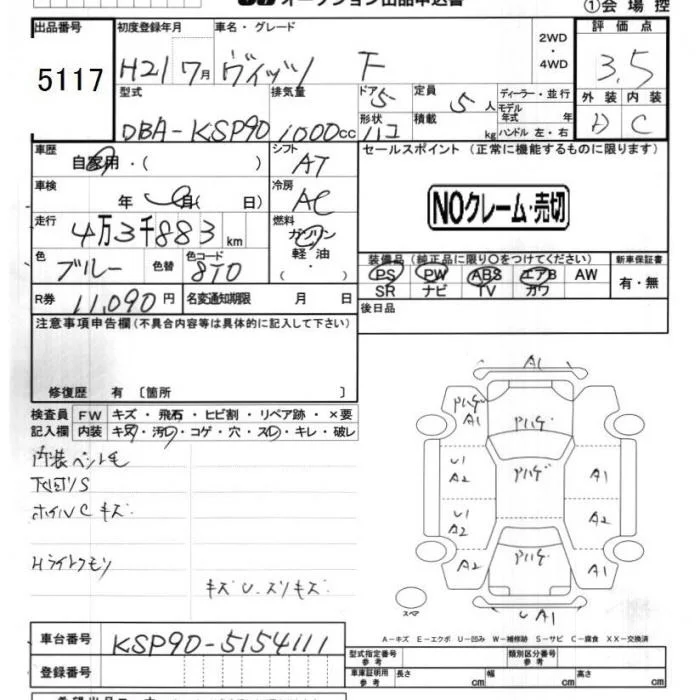 オークション出品申込書
①会場控
出品番号 5117
初度登録年月 H21 7月
車名・グレード ヴィッツ F
2WD・4WD
評価点 3.5
型式 DBA-KSP90
排気量 1000cc
ドア 5
形状 ハコ
定員 5人
積載 kg
ディーラー・並行
モデル年式 年
ハンドル 左・右
外装 内装
D C
車歴 自家用・( )
シフト AT
セールスポイント (正常に機能するものに限ります)
車検 年 月( 日)
冷房 AC
NOクレーム・売切
走行 4万3千883km
燃料 ガソリン・軽油・( )
色 ブルー 色替
色コード 8T0
装備品(純正品に限り○をつけてください)
PS PW ABS エアB AW
SR ナビ TV カワ
新車保証書 有・無
R券 11,090円
名変通知期限 月 日
後日品
注意事項申告欄(不具合内容等は具体的に記入して下さい)
修復歴 有 〔箇所 〕
検査員記入欄
FW キズ・飛石・ヒビ割・リペア跡・×要
内装 キズ・汚れ・コゲ・穴・スレ・キレ・破レ
下回りS
ホイルC キズ
Hライトクモリ
キズU.スリキズ
A1
A1
U1
A2
U1
A2
A2
A1
A2
A1
UA1
スペア
A-キズ E-エクボ U-凹み W-補修跡 S-サビ C-腐食 XX-交換済
車台番号 KSP90-5154111
登録番号
型式指定番号 参考
類別区分番号 参考
車車証明用 参考 長さ cm 幅 cm 高さ cm